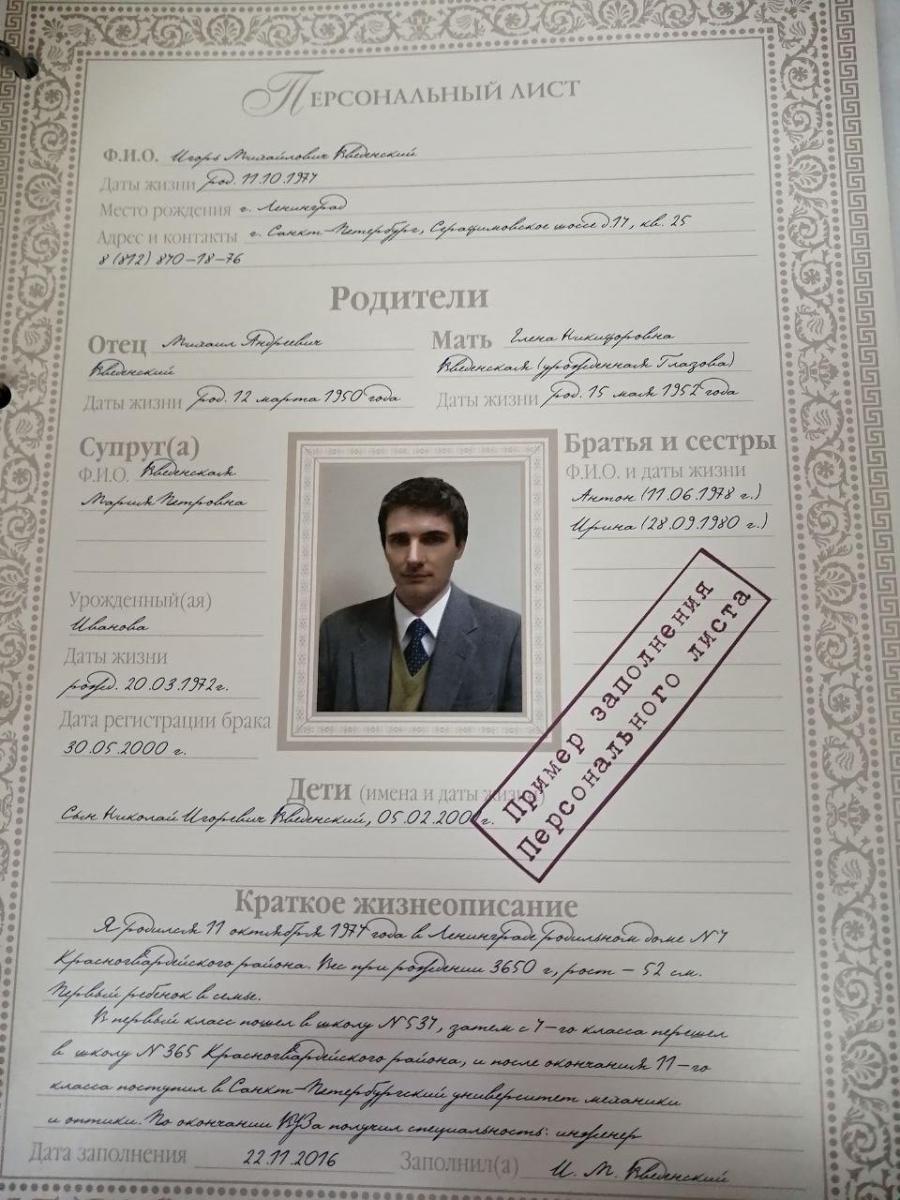 Персональный лист
Ф.И.О. Игорь Михайлович Введенский
Даты жизни род. 11.10.1971
Место рождения г. Ленинград
Адрес и контакты г. Санкт-Петербург, Серафимовское шоссе д.14, кв. 25
8 (812) 840-18-76
Родители
Отец Михаил Андреевич
Введенский
Даты жизни род. 12 марта 1950 года
Мать Елена Никифоровна
Введенская (урожденная Глазова)
Даты жизни род. 15 мая 1952 года
Супруг(а)
Ф.И.О. Введенская
Мария Петровна
Урожденный(ая)
Иванова
Даты жизни
рожд. 20.03.1972г.
Дата регистрации брака
30.05.2000 г.
Братья и сестры
Ф.И.О. и даты жизни
Антон (11.06.1978 г.)
Ирина (28.09.1980 г.)
Пример заполнения
Персонального листа
Дети (имена и даты жизни)
Сын Николай Игоревич Введенский, 05.02.200 г.
Краткое жизнеописание
Я родился 11 октября 1971 года в Ленинграде родильном доме №
Красногвардейского района. Вес при рождении 3650 г, рост – 52 см.
Первый ребенок в семье.
В первый класс пошел в школу № , затем с -го класса перешел
в школу № 365 Красногвардейского района, и после окончания 11-го
класса поступил в Санкт-Петербургский университет механики
и оптики. По окончании ВУЗа получил специальность: инженер
Дата заполнения 22.11.2016 Заполнил(а) И. М. Введенский